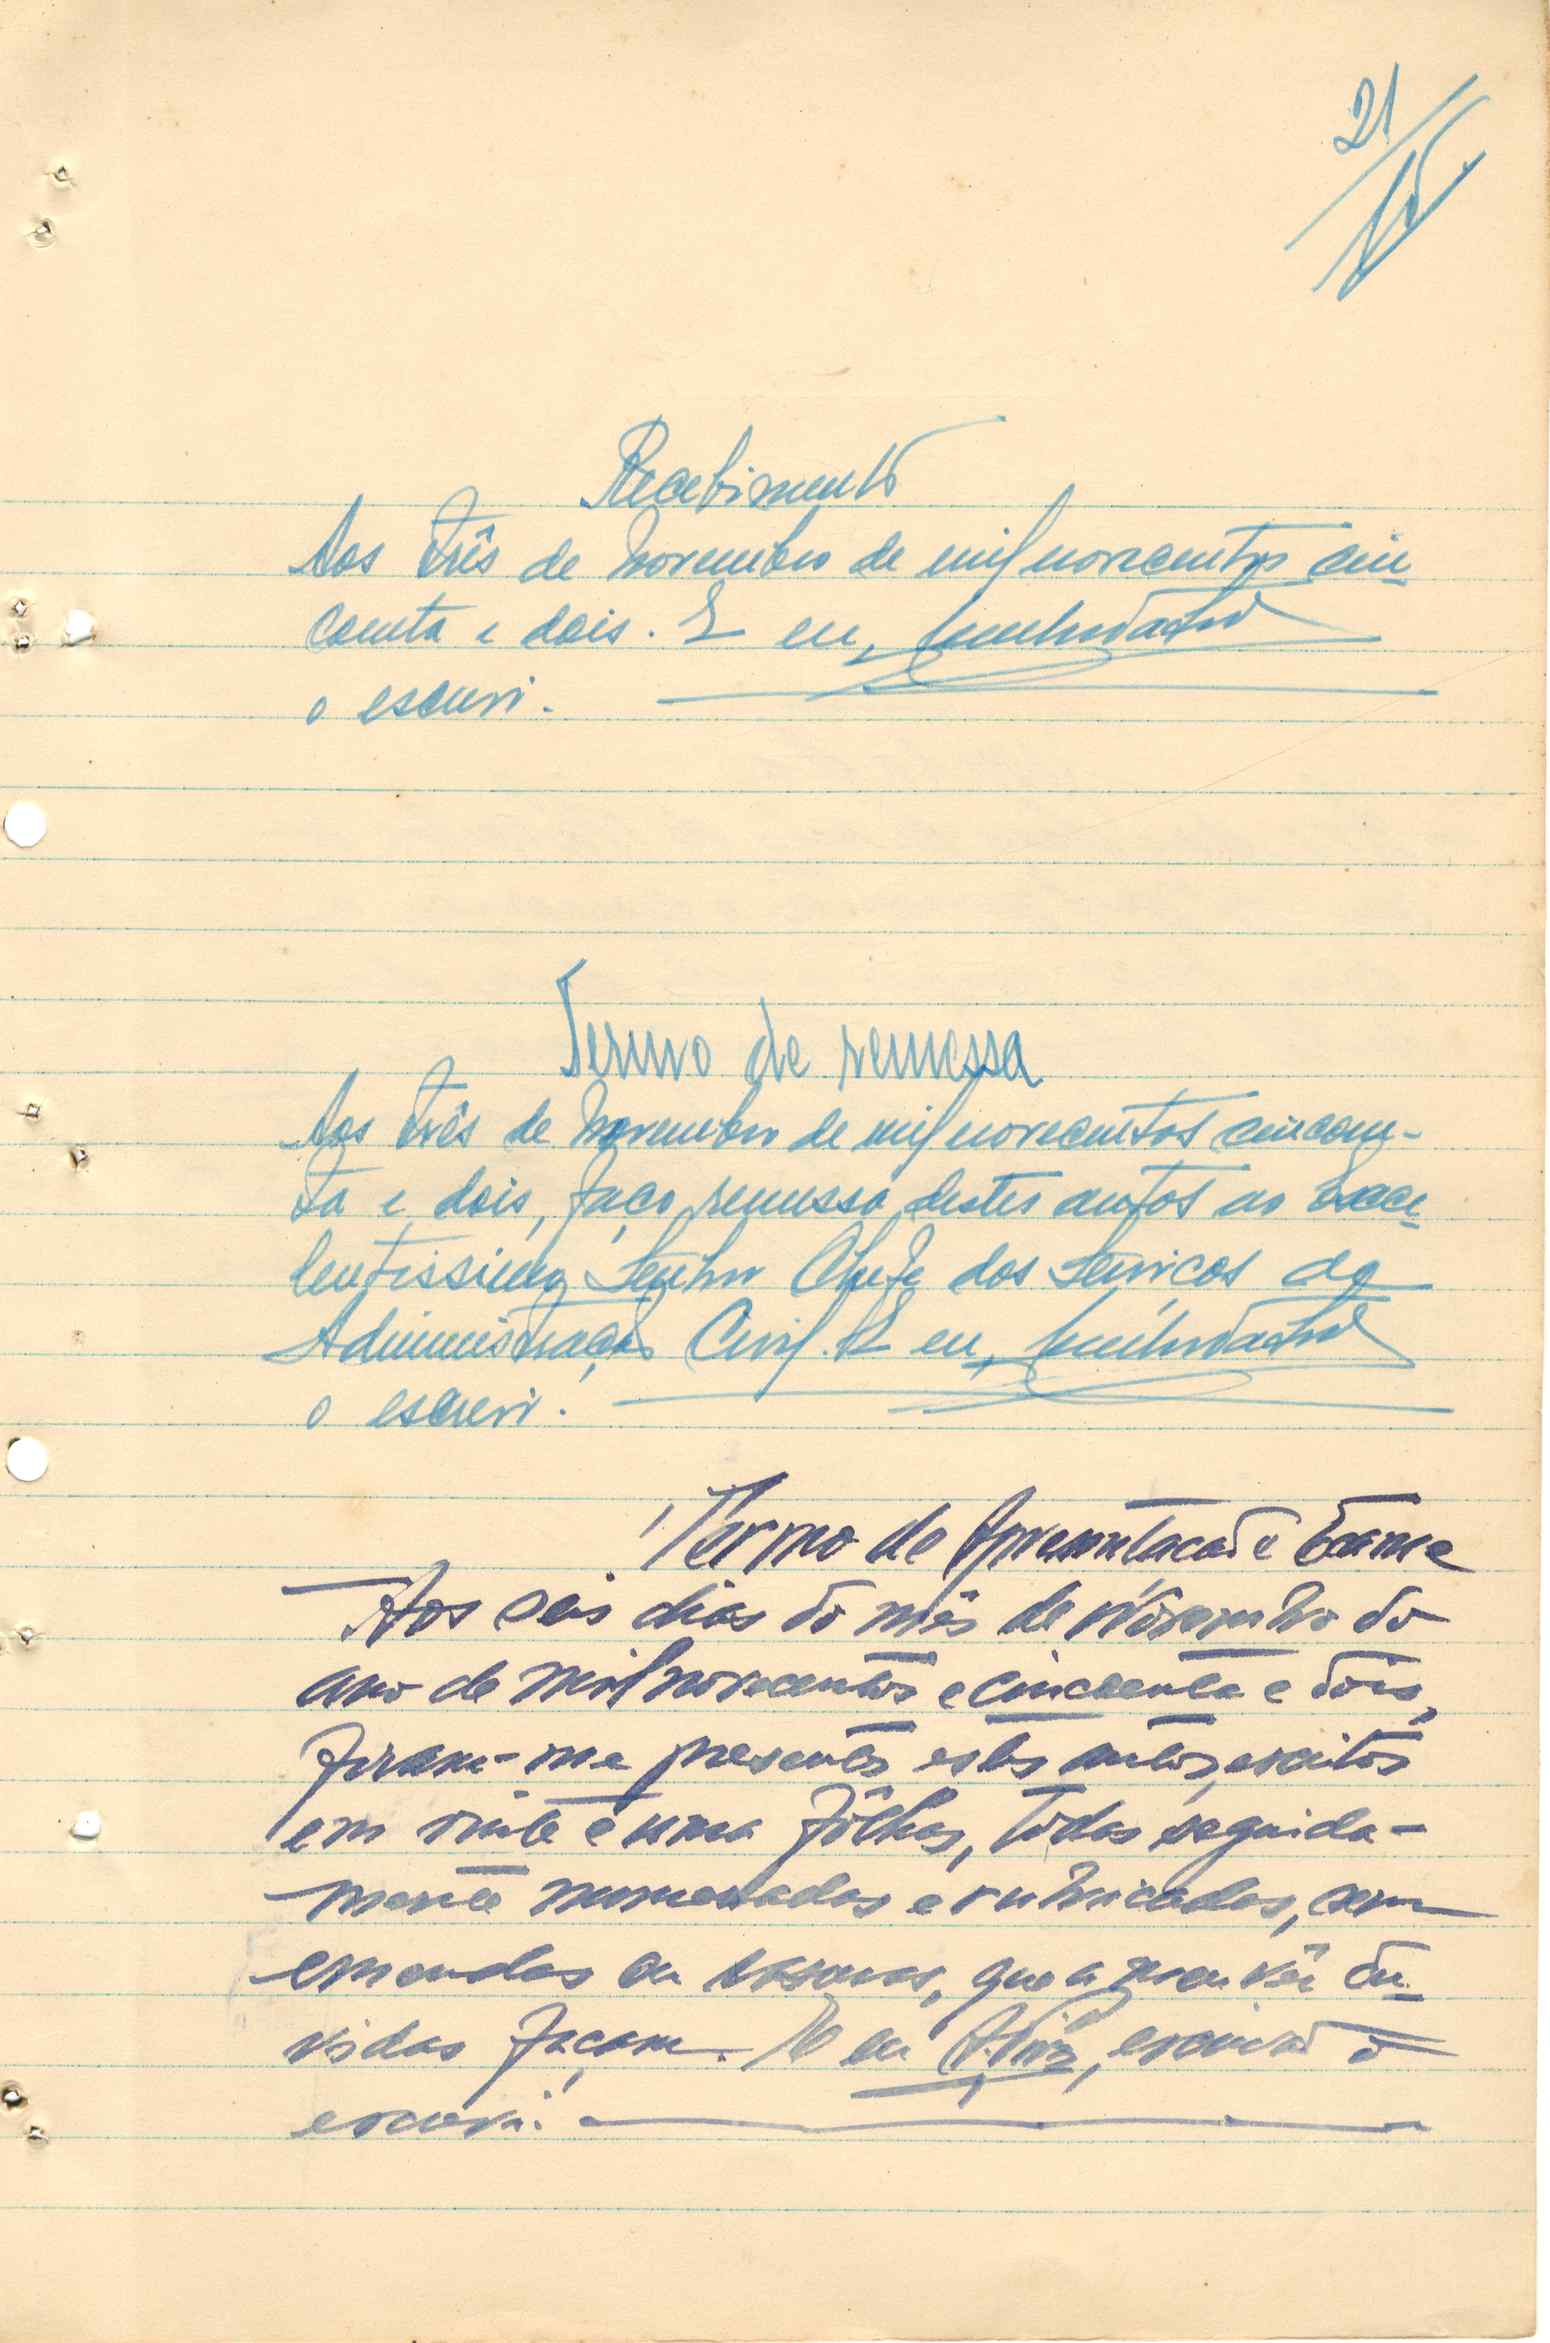 21
Recebimento
Aos três de Novembro de mil novecentos cin-
coenta e dois. E eu,
o escrevi.
Termo de remessa
Aos três de Novembro de mil novecentos cincoen-
ta e dois, faço remessa destes autos ao Exce-
lentissimo Senhor Chefe dos Serviços da
Administração Civil. E eu,
o escrevi.
Termo de Apresentação e Exame
Aos seis dias do mês de Novembro do
ano de mil novecentos e cincoenta e dois,
foram-me presentes estes autos, escritos
em vinte e uma fôlhas, todas seguida-
mente numeradas e rubricadas, sem
emendas ou rasuras, que dú-
vidas façam. E eu escrivão o
escrevi.